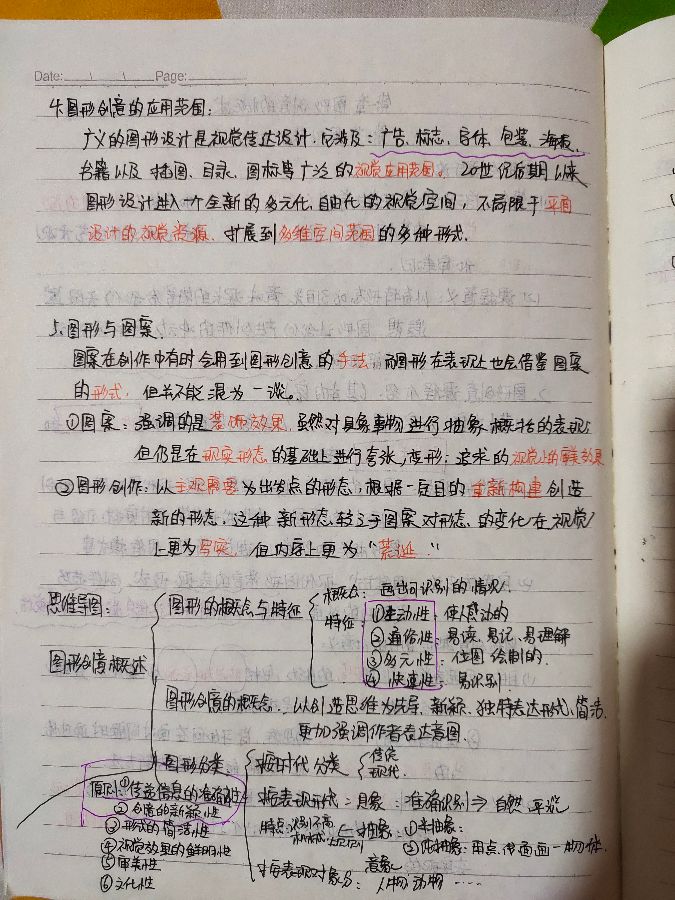 Date: Page:
4.图形创意的应用范围:
广义的图形设计是视觉传达设计,应涉及:广告、标志、字体、包装、海报、
书籍以及插图、目录、图标等广泛的视觉应用范围。20世纪后期以来
图形设计进入一个全新的多元化、自由化的视觉空间,不局限于平面
设计的视觉资源、扩展到多维空间范围的多种形式.
5.图形与图案.
图案在创作中有时会用到图形创意的手法,而图形在表现上也会借鉴图案
的形式,但并不能混为一谈。
①图案:强调的是装饰效果,虽然对具象事物进行抽象、概括的表现;
但仍是在现实形态的基础上进行夸张,变形;追求的视觉上的效果
②图形创作:以主观需要为出发点的形态,根据一定目的重新构建创造
新的形态,这种新形态较之于图案对形态的变化在视觉
上更为写实,但内容上更为“荒诞”
思维导图: 图形的概念与特征 概念:画出可识别的情况
特征:①生动性:使人感动的
图形创意概述 ②通俗性:易读、易记、易理解
③多元性:位图绘制的.
④快速性:易识别
图形创意的概念:以创造思维为先导、新颖、独特表达形式,简洁.
更加强调作者表达意图
图形分类 按时代分类 传统
现代.
原则:①传递信息的准确性 按表现形式:具象:准确识别⇒自然
②创意的新颖性
③形式的简洁性 特点:识别不高 抽象:①半抽象:
④视觉效果的鲜明性 ②纯抽象:用点、线面画一物体.
⑤审美性 意象
⑥文化性 按表现对象分:人物动物……